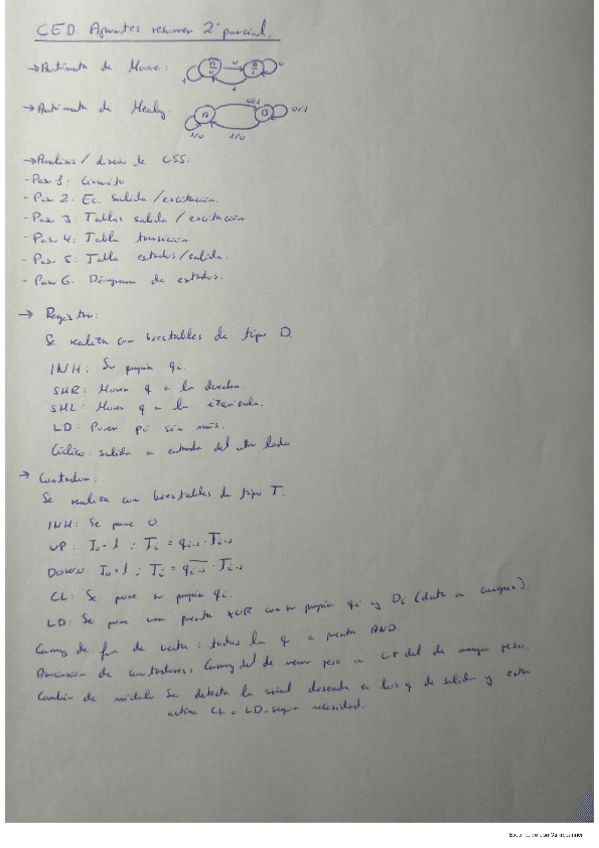 CED. Apuntes resumen 2º parcial.
→ Autómata de Moore:
→ Autómata de Mealy:
A
B
0/1
0/1
1/0
1/0
→ Analisis / diseño de CSS:
- Paso 1: Circuito
- Paso 2: Ec. Salida / excitación.
- Paso 3: Tablas salida / excitación
- Paso 4: Tabla transición
- Paso 5: Tabla estados/salida.
- Paso 6: Diagrama de estados.
→ Registro:
Se realiza con biestables de tipo D.
INH: Su propia qi.
SHR: Mover q a la derecha.
SHL: Mover q a la izquierda.
LD: Poner Di sin más.
Cíclico: salida a entrada del otro lado
→ Contador:
Se realiza con biestables de tipo T.
INH: Se pone 0.
UP: To = 1 ; Ti = qi-1 · Ti-1
DOWN: To = 1 ; Ti = q̅i-1 · Ti-1
CL: Se pone su propia qi.
LD: Se pone una puerta XOR con su propia qi y Di (dato a cargar).
Carry de fin de cuenta: todas la q a puerta AND.
de contadores: Carry del de menor peso a del de mayor peso.
Cambio de módulo: Se detecta la señal deseada en las q de salida y esta
activa CL o LD según necesidad.